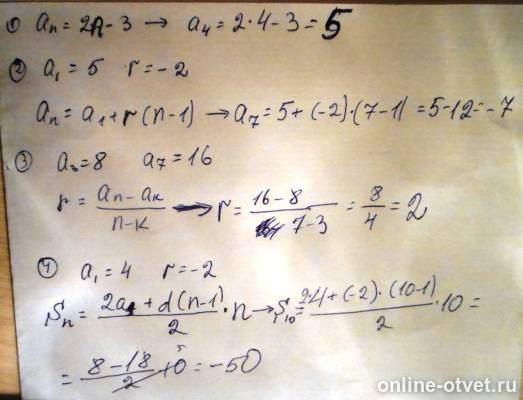 ① an = 2n - 3 → a4 = 2·4 - 3 = 5
② a1 = 5 r = -2
an = a1 + r(n-1) → a7 = 5 + (-2)·(7-1) = 5-12 = -7
③ a3 = 8 a7 = 16
r = (an - ak)/(n-k) → r = (16-8)/(7-3) = 8/4 = 2
④ a1 = 4 r = -2
Sn = (2a1 + d(n-1))/2 · n → S10 = (2·4 + (-2)·(10-1))/2 · 10 =
= (8-18)/2 · 10 5 = -50
online-otvet.ru